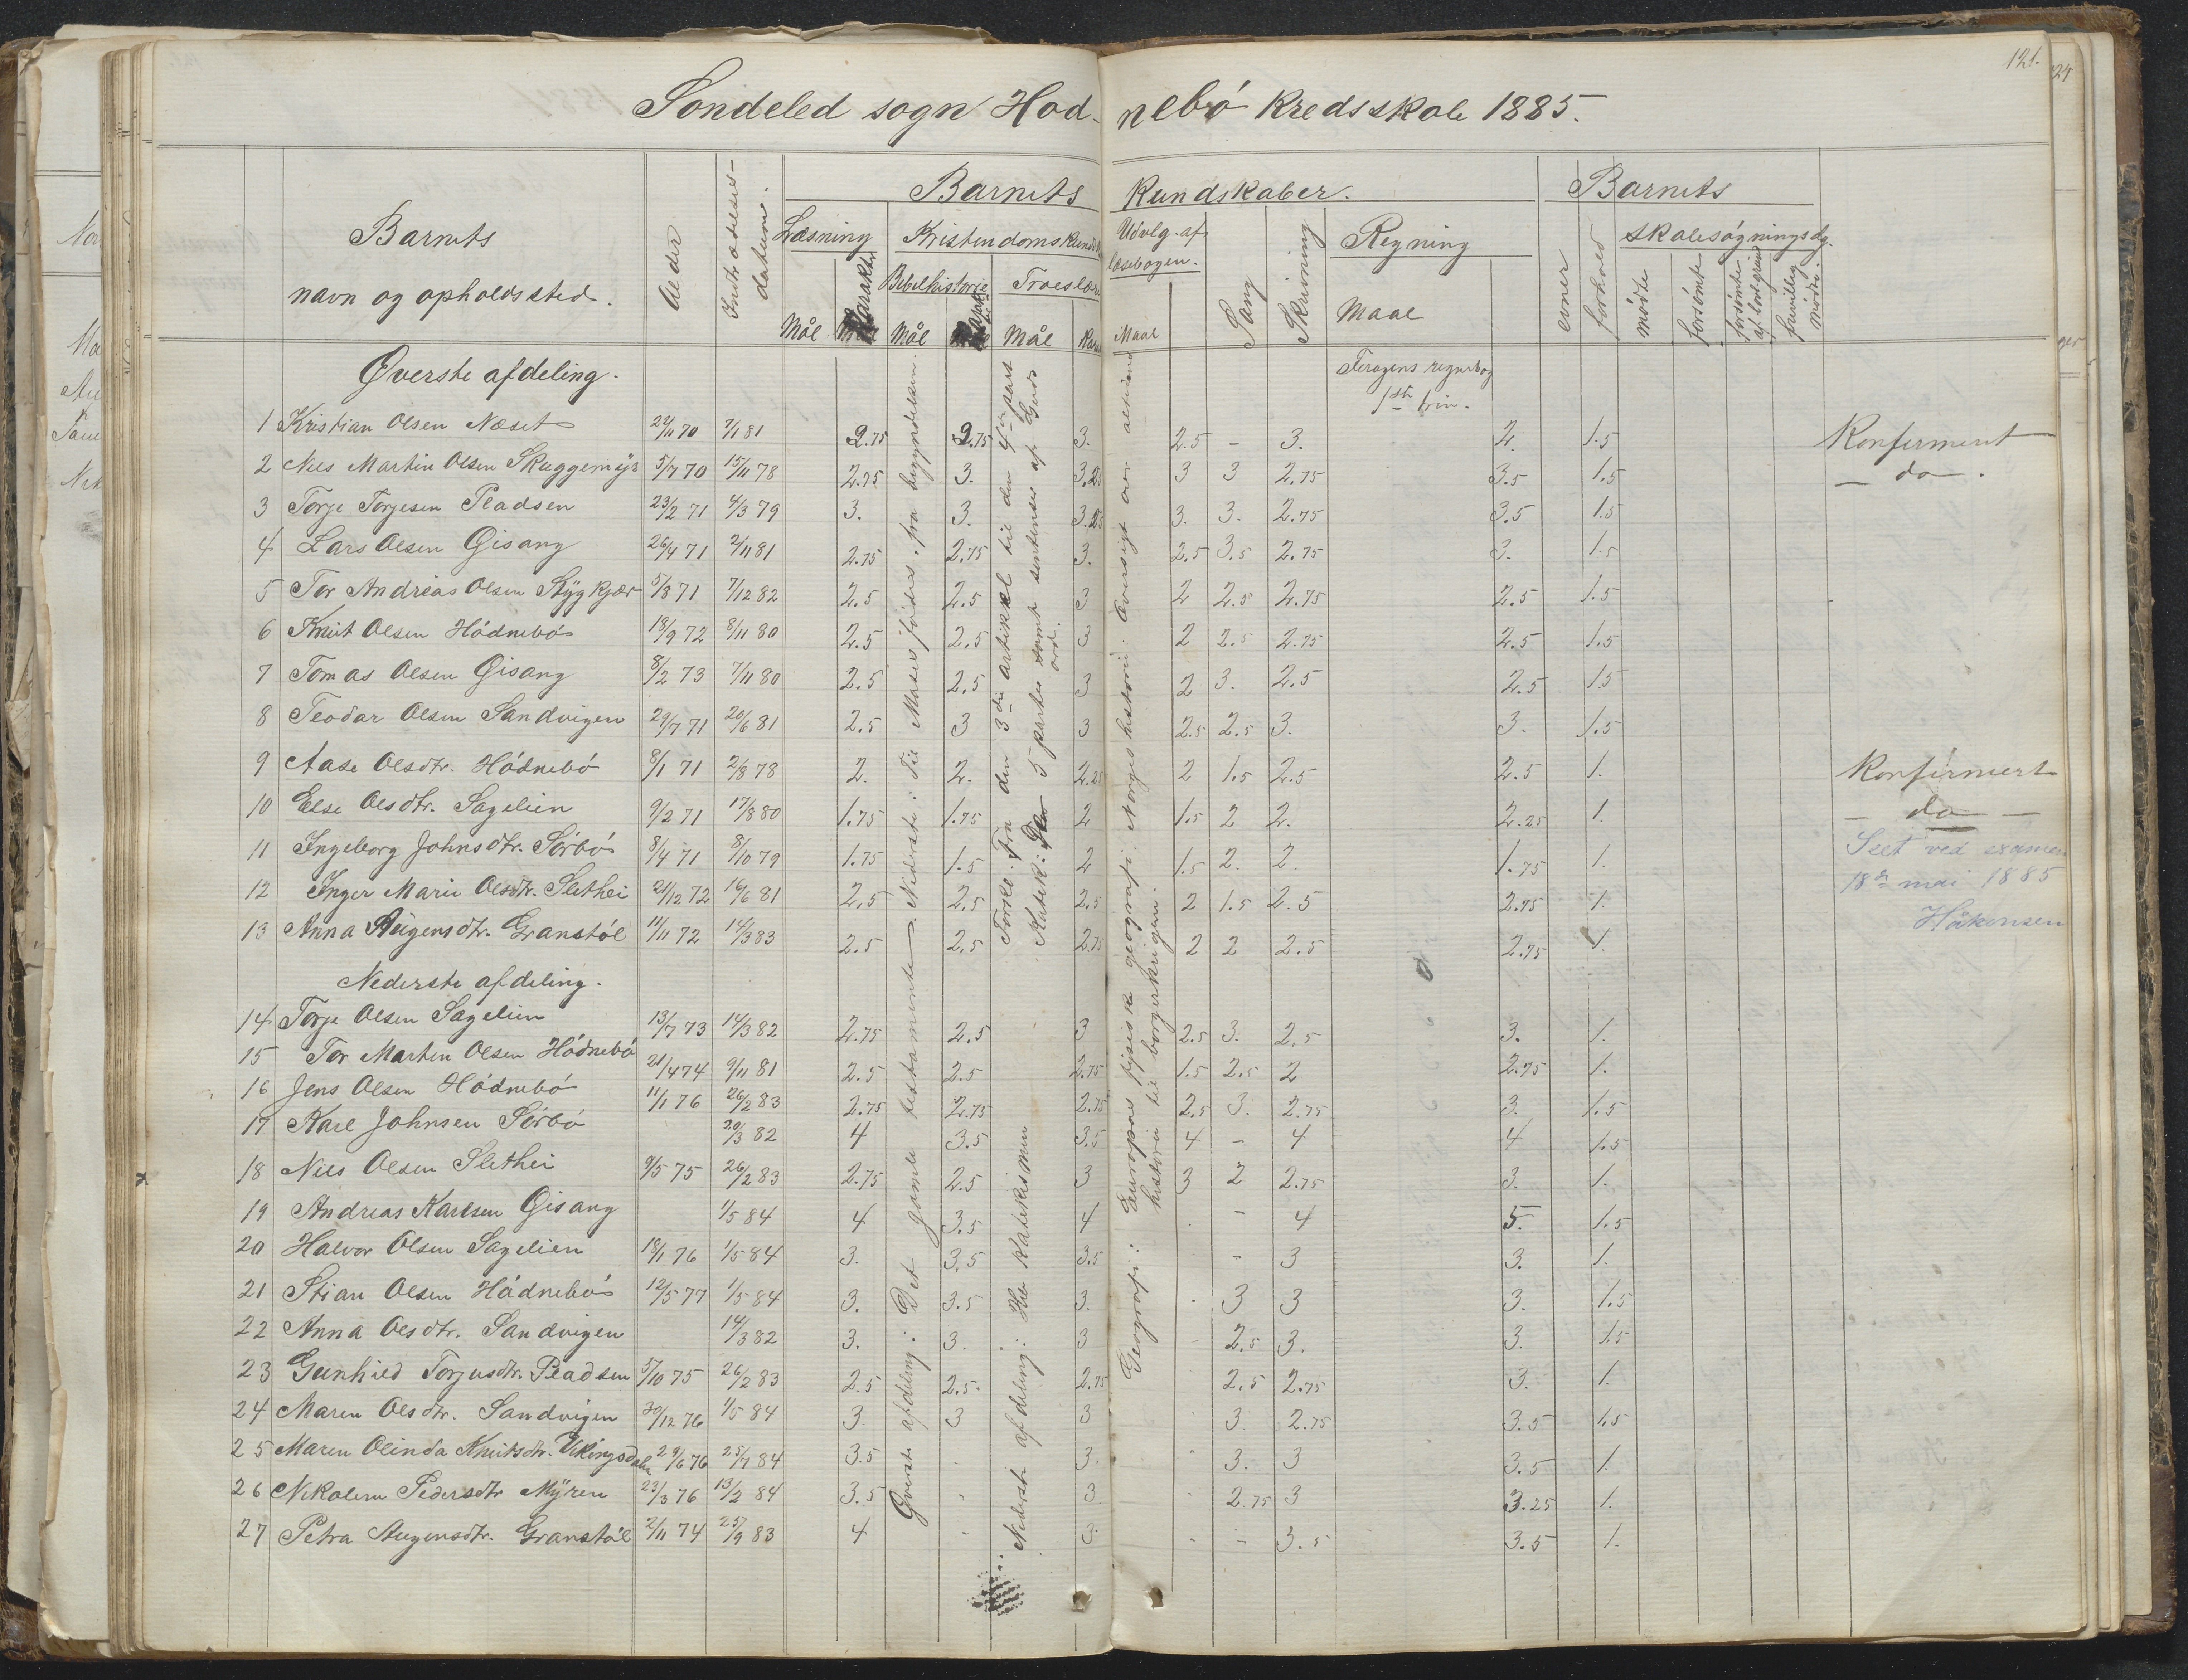 121.
Sondeled sogn Hodnebø kredsskole 1885.
Barnets navn og opholdssted.
Alder
Indtrædelsesdatum.
Barnets kundskaber.
Læsning
Mål
Karakter
Kristendomskundsk
Bibelhistorie
Mål
Karakt
Troeslære
Mål
Kar
Udvlg. af læsebogen.
Maal
Sang
Skrivning
Regning
Maal
Barnets
evner
forhold
skolesøgningsdg.
mødte
forsømte
forsømte af lovl. grund
frivillig møder.
Øverste afdeling.
1ste trin.
1 Kristian Olsen Næset 29/11 70 7/1 81 2.75 2.75 3. 2.5 - 3. 4. 1.5 Konfirmeret
2 Nils Martin Olsen Skuggemyr 5/7 70 15/11 78 2.75 3. 3.25 3 3 2.75 3.5 1.5 - do -.
3 Torje Torjesen Pladsen 23/2 71 4/3 79 3. 3. 3.25 3. 3. 2.75 3.5 1.5
4 Lars Olsen Gisang 26/4 71 2/11 81 2.75 2.75 3. 2.5 3.5 2.75 3. 1.5
5 Tor Andreas Olsen Stygkjær 5/8 71 7/12 82 2.5 2.5 3 2 2.5 2.75 2.5 1.5
6 Knut Olsen Hødnebø 18/9 72 8/11 80 2.5 2.5 3 2 2.5 2.75 2.5 1.5
7 Tomas Olsen Gisang 8/2 73 7/11 80 2.5 2.5 3 2 3. 2.5 2.5 1.5
8 Teodar Olsen Sandvigen 29/7 71 20/6 81 2.5 3 3 2.5 2.5 3. 3. 1.5
9 Aase Olsdtr. Hødnebø 8/1 71 2/8 78 2. 2. 2.25 2 1.5 2.5 2.5 1. Konfirmert
10 Else Olsdtr. Sagelien 9/2 71 17/8 80 1.75 1.75 2 1.5 2 2. 2.25 1. - do -
11 Ingeborg Johnsdtr. Sørbø 8/4 71 8/10 79 1.75 1.5 2 1.5 2. 2. 1.75 1.
Seet ved examen
12 Inger Marie Olsdtr. Slethei 21/12 72 16/6 81 2.5 2.5 2.5 2 1.5 2.5 2.75 1.
18de mai 1885
13 Anna Augensdtr. Granstøl 11/11 72 14/3 83 2.5 2.5 2.75 2 2 2.5 2.75 1.
Håkensen
Nederste afdeling.
14 Torje Olsen Sagelien 13/7 73 14/3 82 2.75 2.5 3 2.5 3. 2.5 3. 1.
15 Tor Martin Olsen Hødnebø 21/4 74 9/11 81 2.5 2.5 2.75 1.5 2.5 2 2.75 1.
16 Jens Olsen Hødnebø 11/1 76 26/2 83 2.75 2.75 2.75 2.5 3. 2.75 3. 1.5
17 Karl Johnsen Sørbø 20/3 82 4 3.5 3.5 4 - 4 4 1.5
18 Nils Olsen Slethei 9/5 75 26/2 83 2.75 2.5 3 3 2 2.75 3. 1.
19 Andreas Karlsen Gisang 1/5 84 4 3.5 4 . - 4 5. 1.5
20 Halvor Olsen Sagelien 18/1 76 1/5 84 3. 3.5 3.5 - 3 3. 1.
21 Stian Olsen Hødnebø 12/5 77 1/5 84 3. 3.5 3. . 3 3 3. 1.5
22 Anna Olsdtr. Sandvigen 14/3 82 3. 3. 3 2.5 3. 3. 1.5
23 Gunhild Torjusdtr. Pladsen 5/10 75 26/2 83 2.5 2.5. 2.75 2.5 2.75 3. 1.
24 Maren Olsdtr. Sandvigen 30/12 76 1/5 84 3. 3 3 3. 2.75 3.5 1.5
25 Maren Olinda Knutsdtr. Vikingsdalen 29/6 76 25/7 84 3.5 . 3. . 3. 3 3.5 1.
26 Nikoline Pedersdtr Myren 23/3 76 13/2 84 3.5 . 3. 2.75 3 3.25 1.
27 Petra Augensdtr. Granstøl 2/11 74 25/9 83 4 . 3. . - 3.5 3.5 1.
Øverste afdeling: Det gamle testamente. Nederste: Til Moses' fødsel, fra begyndelsen.
Forkl.: Fra den 3die artikkel til den 4de part
Katek: De 5 parter samt sentenser af Guds ord.
Nederste afdeling: Katekismen
Geografi: Europas fysiske geografi. Norges historie: Oversigt over historie til borgerkrigene.